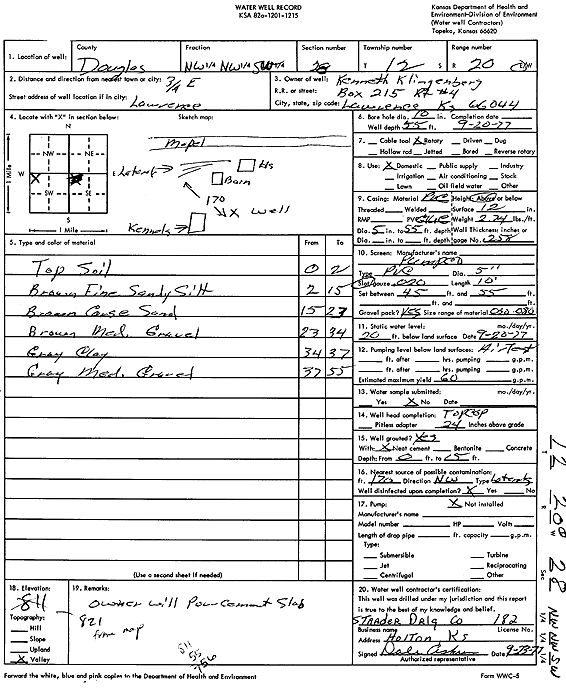 WATER WELL RECORD
KSA 82a-1201-1215
Kansas Department of Health and
Environment-Division of Environment
(Water well Contractors)
Topeka, Kansas 66620
1. Location of well:
County
Douglas
Fraction
NW 1/4 NW 1/4 SW 1/4
Section number
Township number
T 12 S
Range number
R 20 E/W
2. Distance and direction from nearest town or city: 3/4 E
Street address of well location if in city:
Lawrence
3. Owner of well: Kenneth Klingenberg
R.R. or street: Box 215 Rt #4
City, state, zip code: Lawrence Ks 66044
4. Locate with "X" in section below:
Sketch map:
N
NW
NE
W
E
SW
SE
S
1 Mile
1 Mile
X
Map
Laterals
Hs
Barn
170
X Well
Kennels
6. Bore hole dia. 10 in. Completion date
Well depth 55 ft. 9-20-77
7. Cable tool X Rotary Driven Dug
Hollow rod Jetted Bored Reverse rotary
8. Use: X Domestic Public supply Industry
Irrigation Air conditioning Stock
Lawn Oil field water Other
9. Casing: Material PVC Height: Above or below
Threaded Welded Surface 12 in.
RMP PVC Weight 2.24 lbs./ft.
Dia. 5 in. to 55 ft. depth Wall Thickness: inches or
Dia. in. to ft. depth gage No. .258
5. Type and color of material
From
To
Top Soil 0 2
Brown Fine Sandy Silt 2 15
Brown Course Sand 15 23
Brown Med. Gravel 23 34
Gray Clay 34 37
Gray Med. Gravel 37 55
(Use a second sheet if needed)
10. Screen: Manufacturer's name
Type PVC Dia. 5"
Slot/gauze .020 Length 10'
Set between 45 ft. and 55 ft.
ft. and ft.
Gravel pack? Yes Size range of material
11. Static water level: mo./day/yr.
20 ft. below land surface Date 9-20-77
12. Pumping level below land surfaces: Air Test
ft. after hrs. pumping g.p.m.
ft. after hrs. pumping g.p.m.
Estimated maximum yield 60 g.p.m.
13. Water sample submitted: mo./day/yr.
Yes X No Date
14. Well head completion:
Pitless adapter 24 Inches above grade
15. Well grouted? Yes
With: X Neat cement Bentonite Concrete
Depth: From 0 ft. to ft.
16. Nearest source of possible contamination:
ft. 170 Direction NW Type Laterals
Well disinfected upon completion? X Yes No
17. Pump: X Not installed
Manufacturer's name
Model number HP Volts
Length of drop pipe ft. capacity g.p.m.
Type:
Submersible Turbine
Jet Reciprocating
Centrifugal Other
18. Elevation:
811
821
from map
Topography:
Hill
Slope
Upland
X Valley
19. Remarks:
Owner will Pour Cement Slab
20. Water well contractor's certification:
This well was drilled under my jurisdiction and this report
is true to the best of my knowledge and belief.
Strader Drlg Co 182
Business name License No.
Address Holton, Ks
Signed Date
Authorized representative
T 12
R 20 E W
Sec 28
NW NW SW
1/4 1/4 1/4
Forward the white, blue and pink copies to the Department of Health and Environment
Form WWC-5